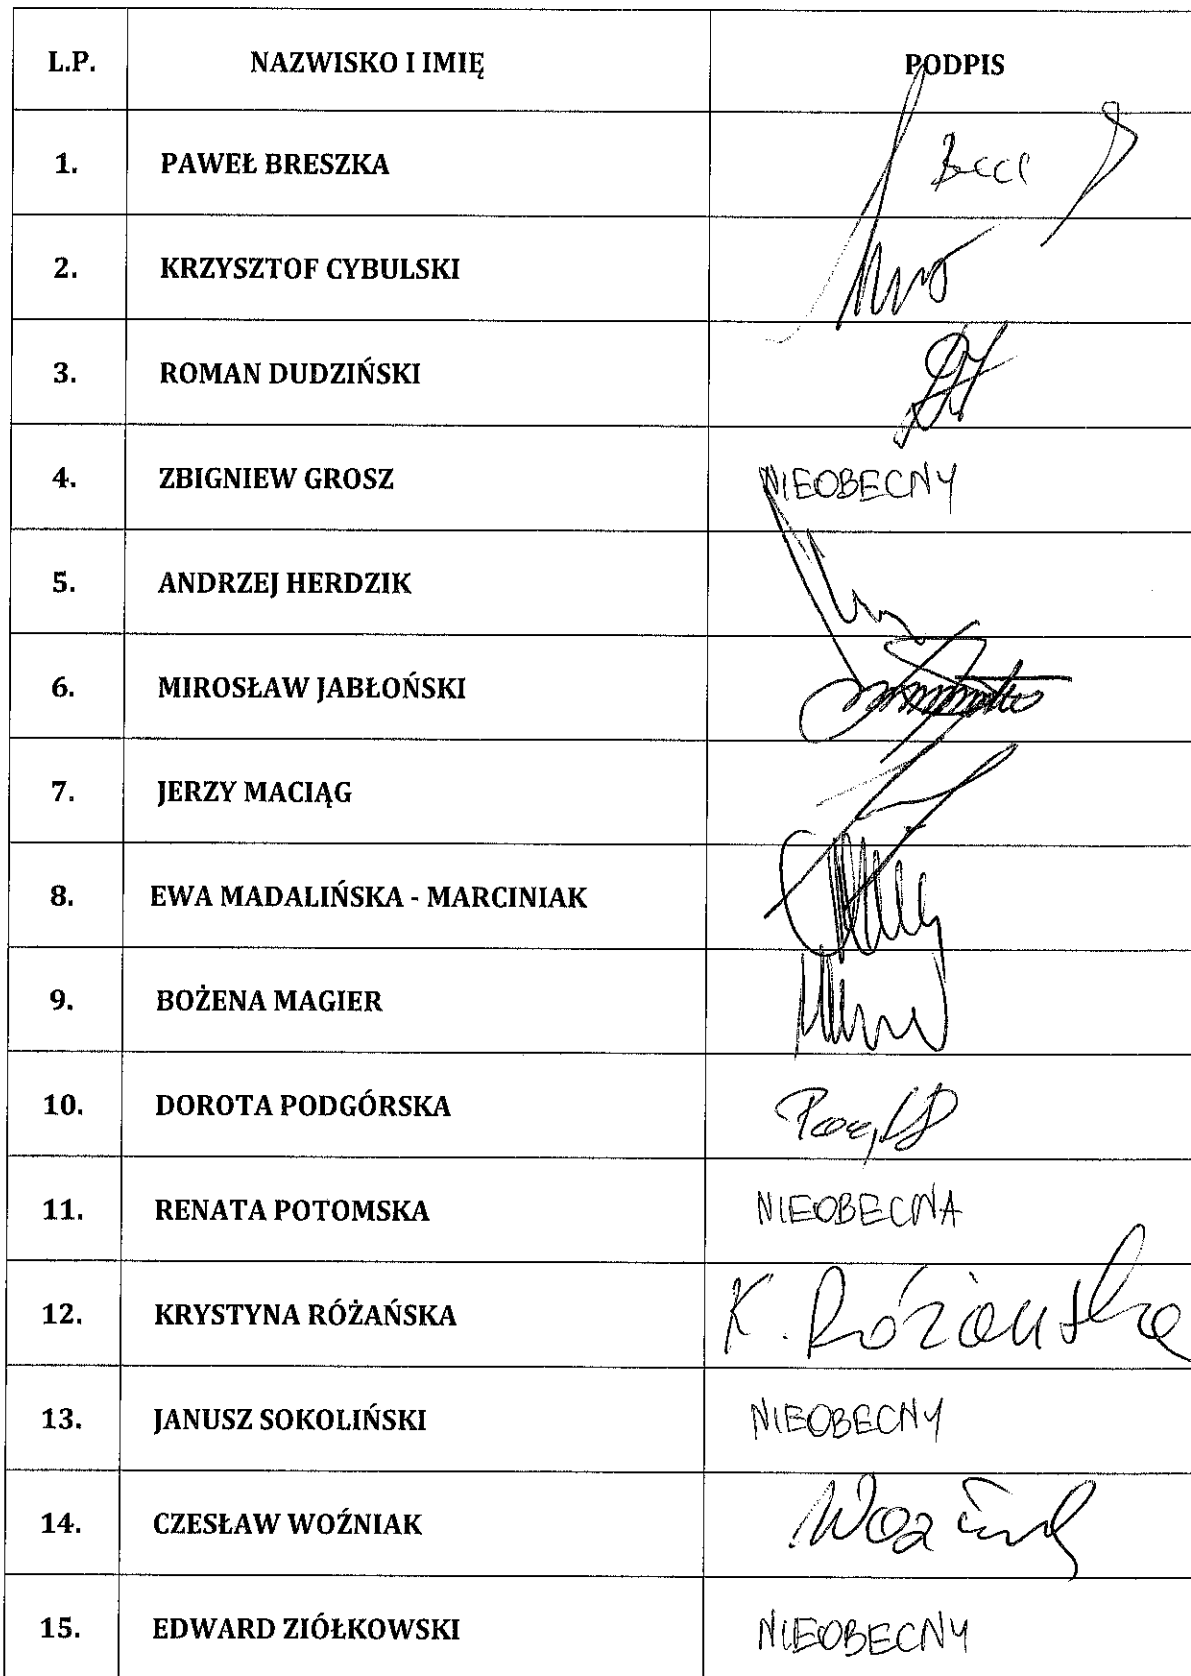 L.P. NAZWISKO I IMIĘ PODPIS
1. PAWEŁ BRESZKA
2. KRZYSZTOF CYBULSKI
3. ROMAN DUDZIŃSKI
4. ZBIGNIEW GROSZ NIEOBECNY
5. ANDRZEJ HERDZIK
6. MIROSŁAW JABŁOŃSKI
7. JERZY MACIĄG
8. EWA MADALIŃSKA - MARCINIAK
9. BOŻENA MAGIER
10. DOROTA PODGÓRSKA
11. RENATA POTOMSKA NIEOBECNA
12. KRYSTYNA RÓŻAŃSKA K. Różańska
13. JANUSZ SOKOLIŃSKI NIEOBECNY
14. CZESŁAW WOŹNIAK
15. EDWARD ZIÓŁKOWSKI NIEOBECNY